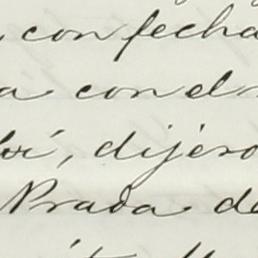 con fecha
a con el
dijero
Prada de